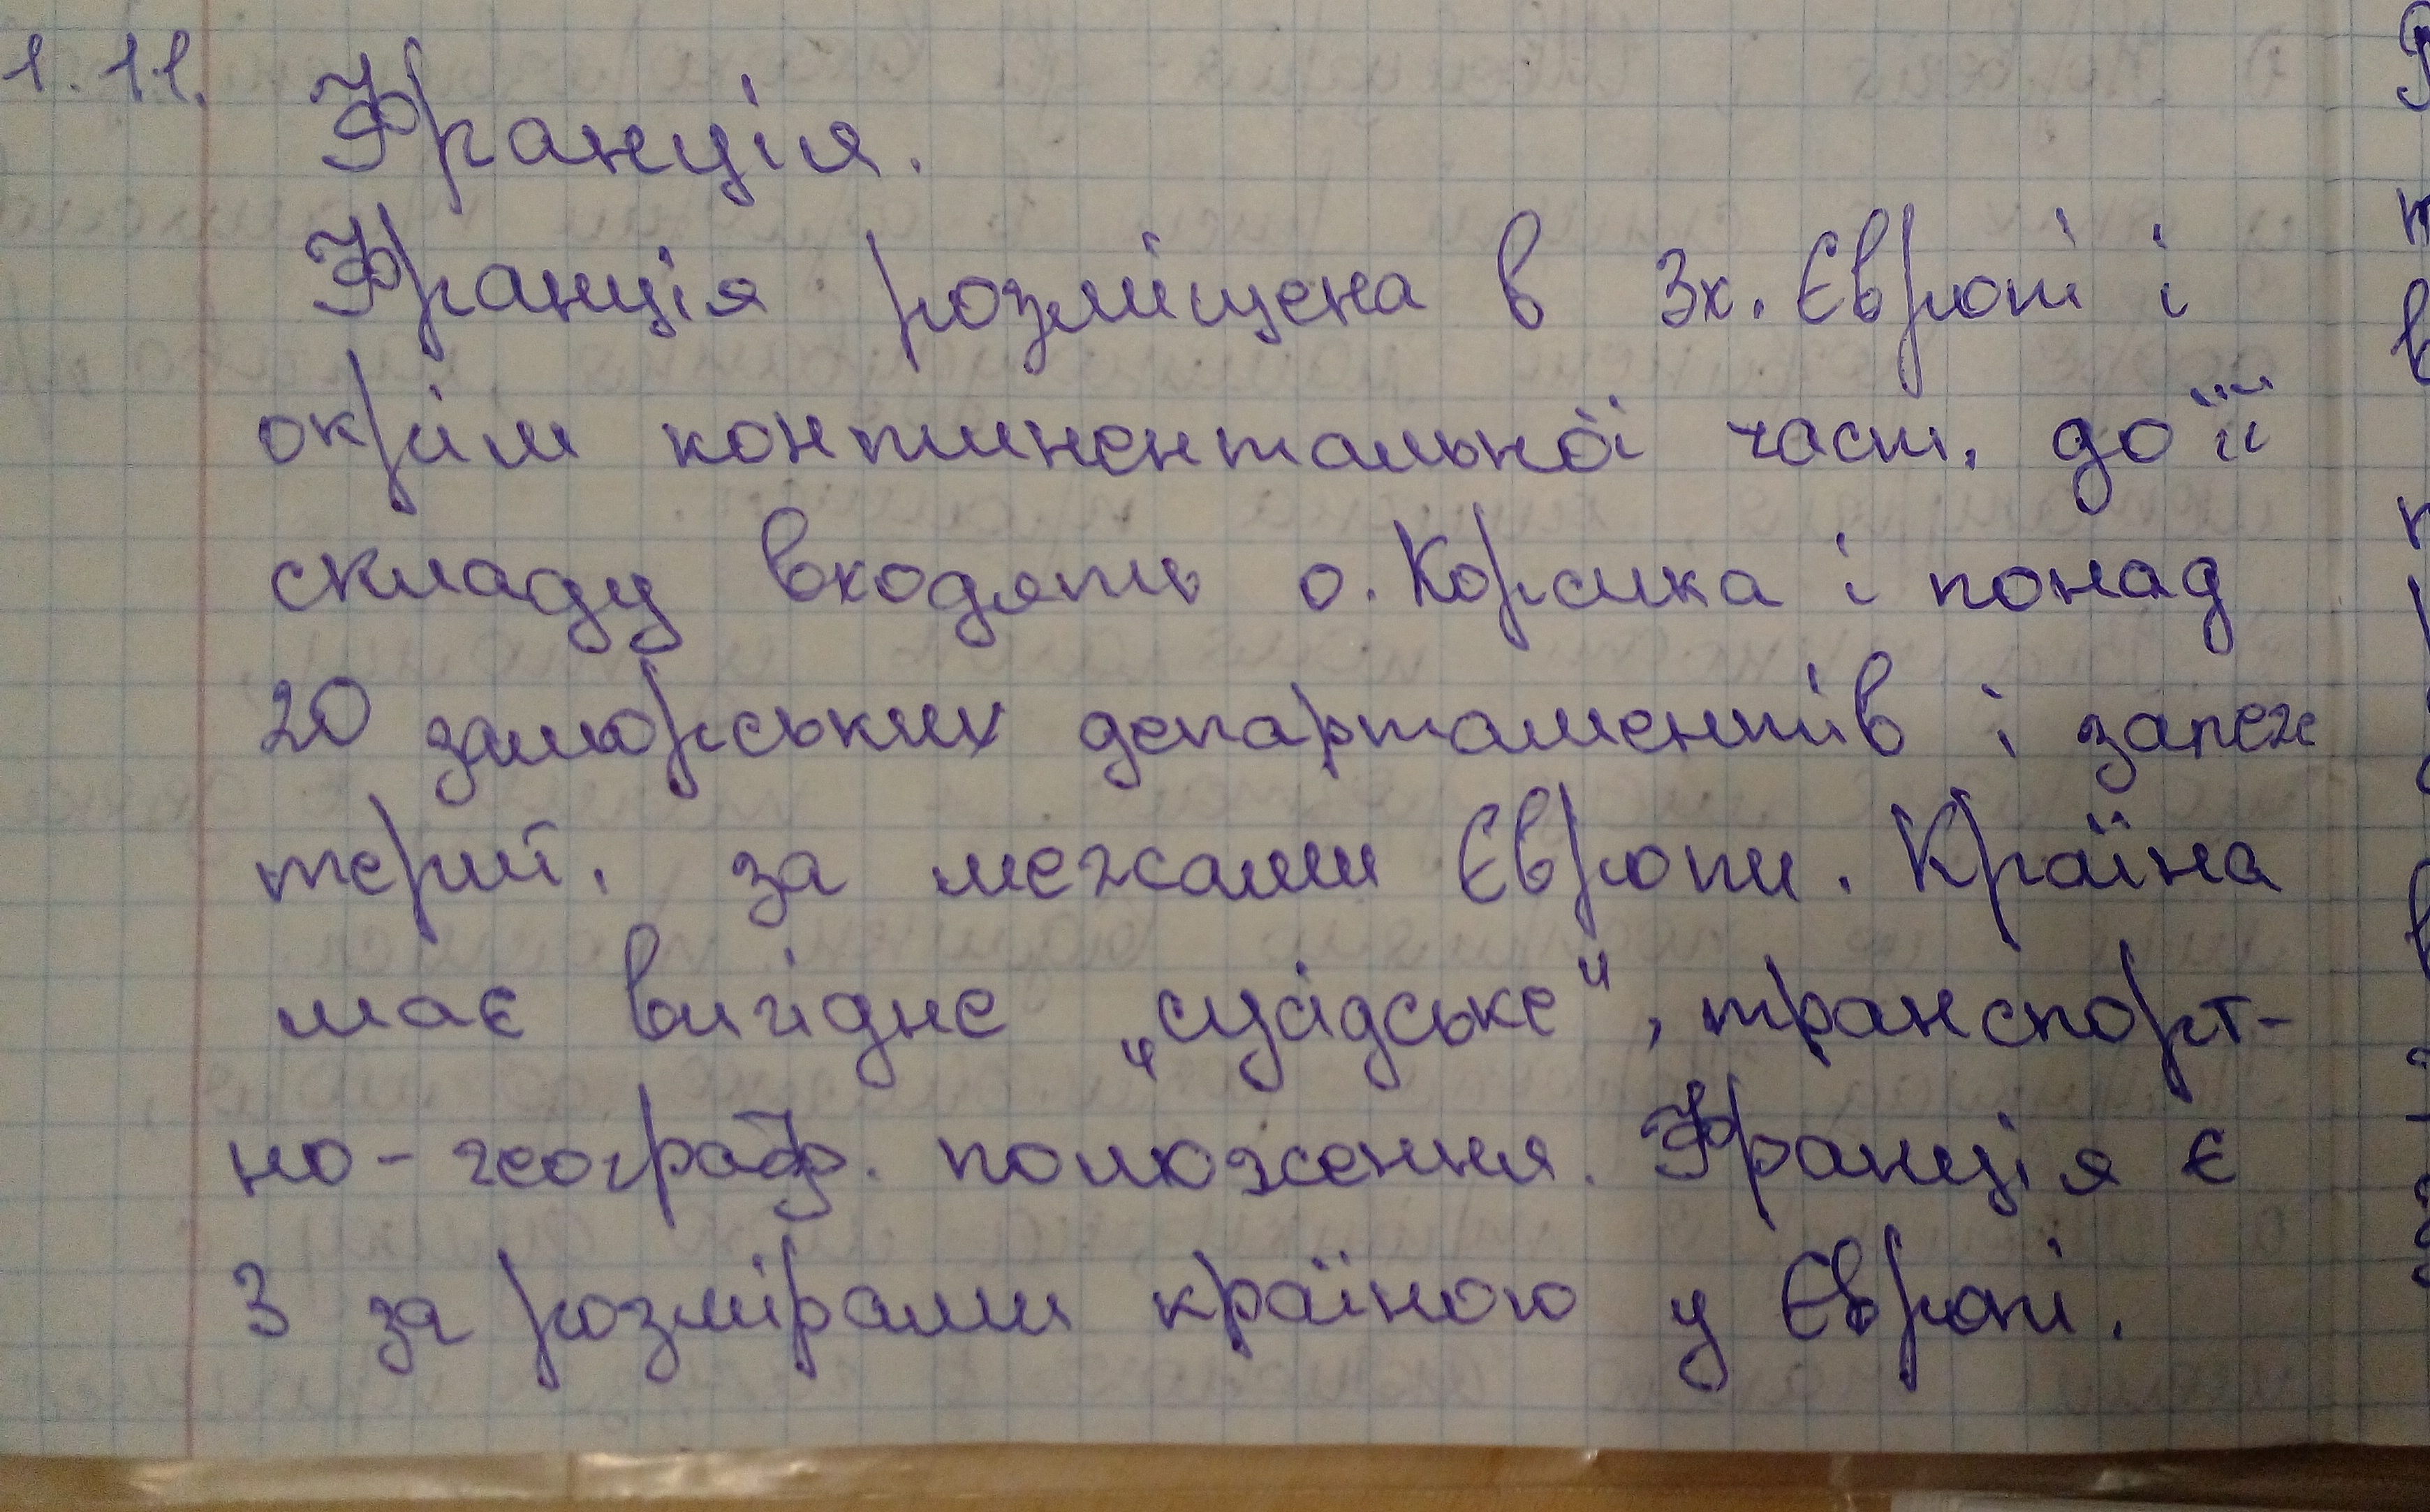 1.11.
Франція.
Франція розміщена в Зх. Європі і
окрім континентальної част. до її
складу входять о. Корсика і понад
20 заморських департаментів і залеж
терит. за межами Європи. Країна
має вигідне „сусідське", транспорт-
но-географ. положення. Франція є
3 за розмірами країною у Європі.